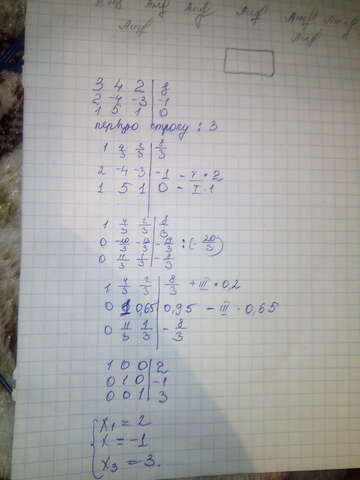 3 4 2 | 8
2 -4 -3 | -1
1 5 1 | 0
первую строку : 3
1 4/3 2/3 | 8/3
2 -4 -3 | -1 - I · 2
1 5 1 | 0 - I · 1
1 4/3 2/3 | 8/3
0 -20/3 -13/3 | -19/3 : (-20/3)
0 11/3 1/3 | -8/3
1 4/3 2/3 | 8/3 + III · 0,2
0 1 0,65 | 0,95 - III · 0,65
0 11/3 1/3 | -8/3
1 0 0 | 2
0 1 0 | -1
0 0 1 | 3
x₁ = 2
x = -1
x₃ = 3.